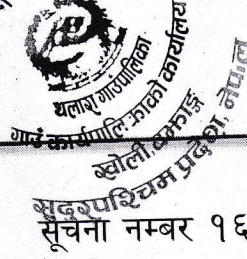 थलारा गाउँपालिका
गाउँ कार्यपालिकाको कार्यालय
खोली, बझाङ
सुदुरपश्चिम प्रदेश, नेपाल
सूचना नम्बर १६